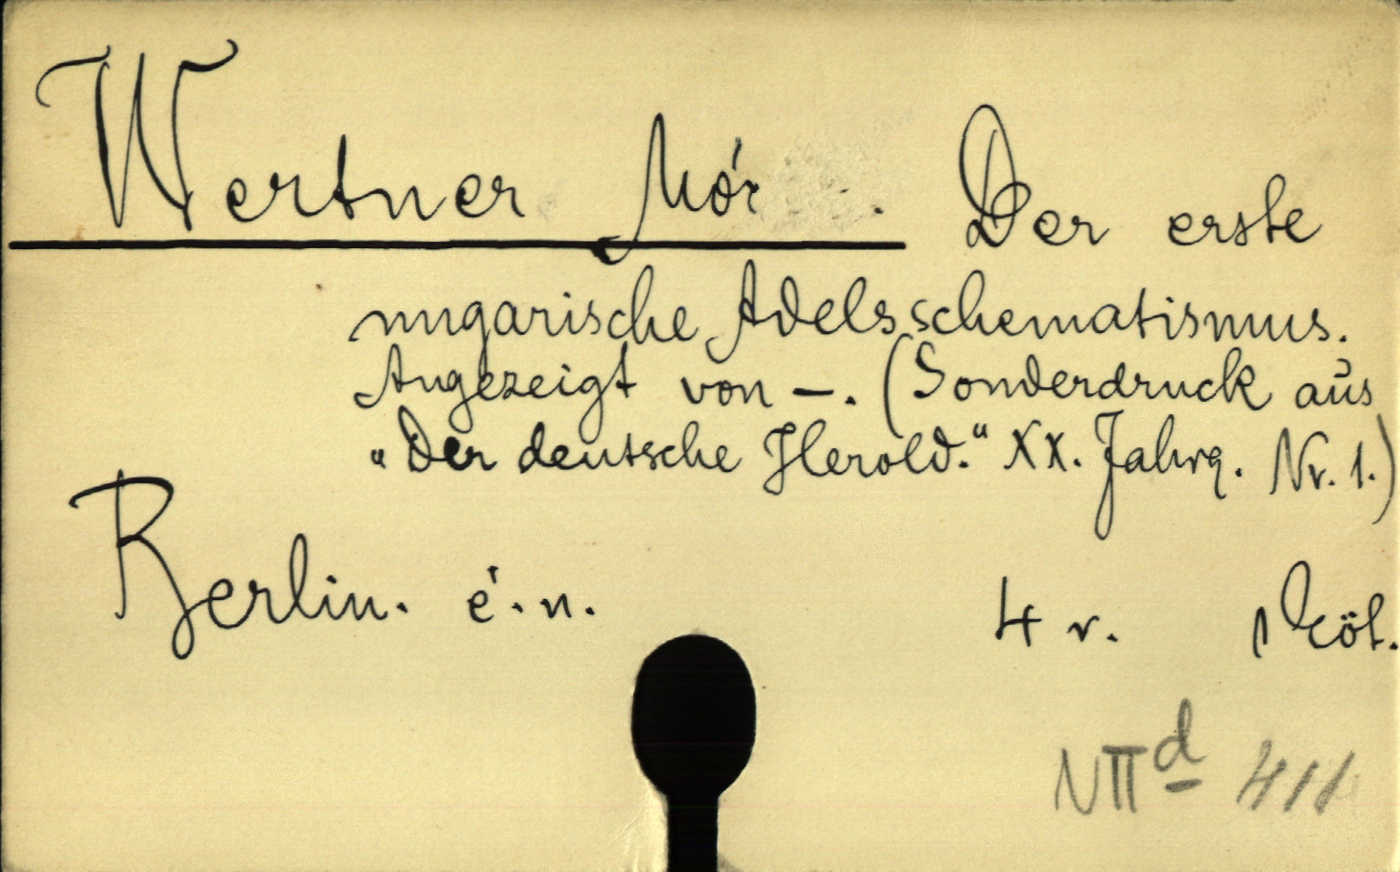 Wertner Mór. Der erste
ungarische Adelsschematismus.
Angezeigt von —. (Sonderdruck aus
„Der deutsche Herold.“ XX. Jahrg. Nr. 1.)
Berlin. é. n. 4 r. Köt.
NII d 411